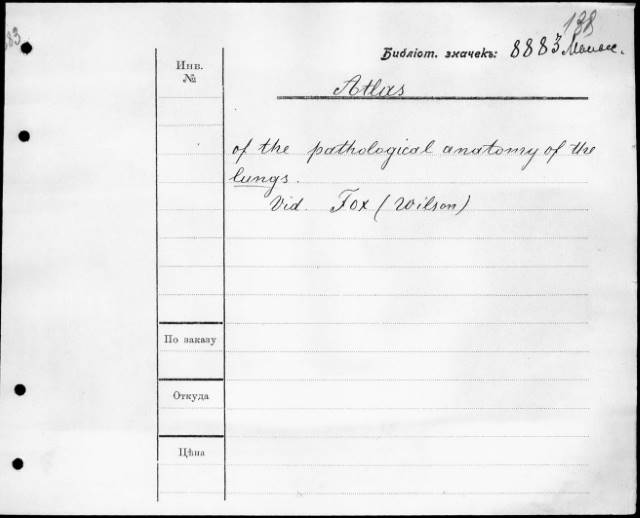 138
Библіот. значекъ: 8883
Инв.
№
Atlas
of the pathological anatomy of the
lungs.
Vid. Fox (Wilson)
По заказу
Откуда
Цѣна